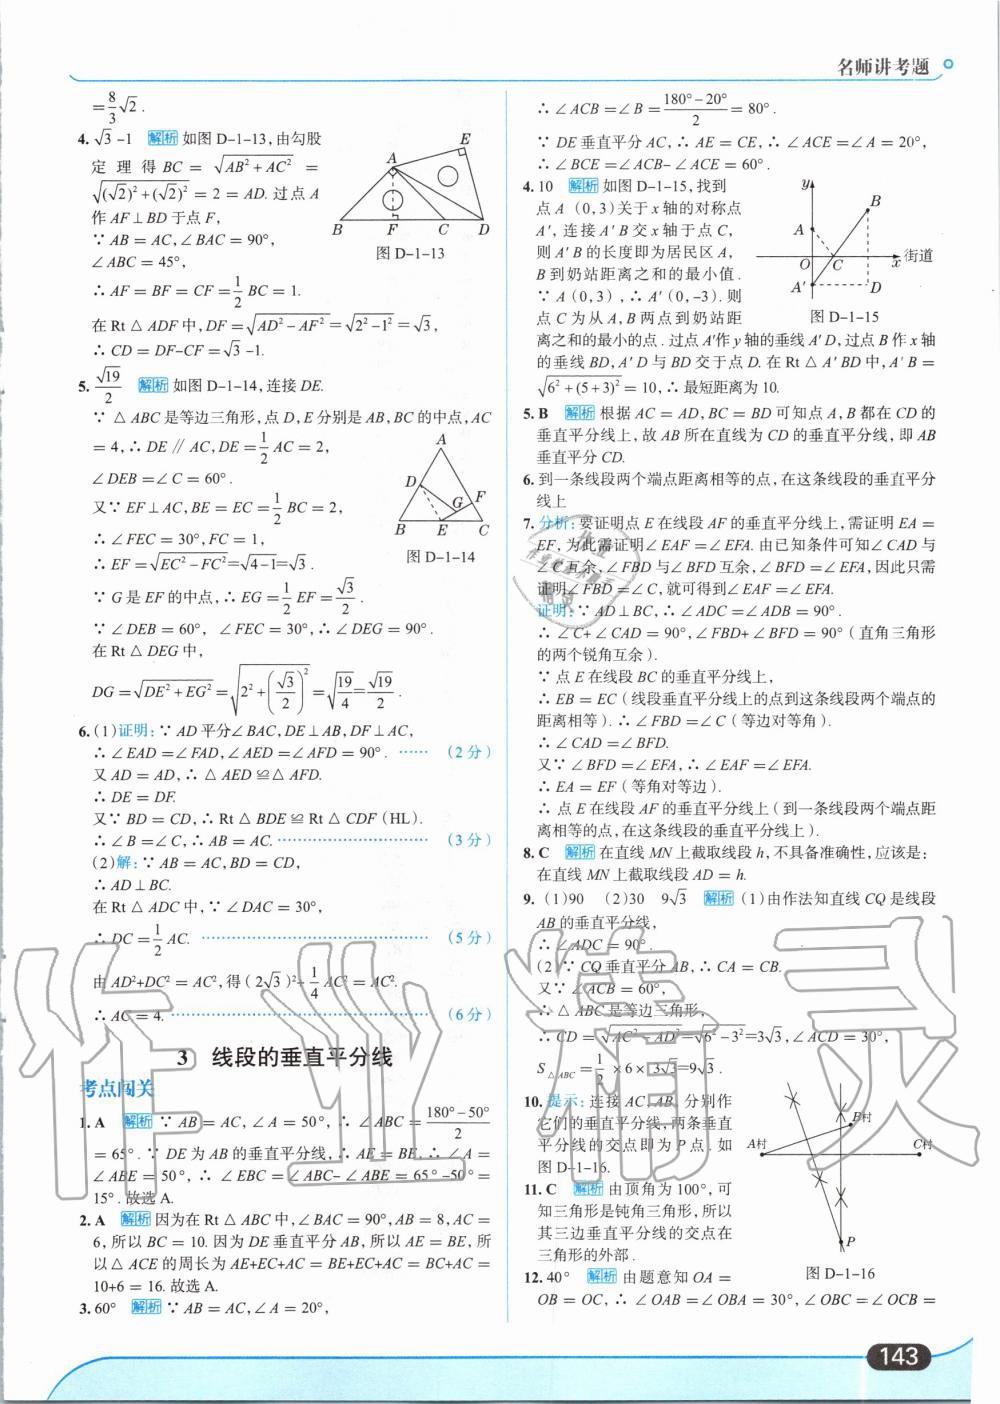 名师讲考题
=8/3√2.
4. √3-1 解析 如图 D-1-13,由勾股
定理得 BC = √(AB²+AC²) =
√((√2)²+(√2)²) = 2 = AD. 过点 A
作 AF⊥BD 于点 F,
∵ AB = AC,∠BAC = 90°,
∠ABC = 45°,
∴ AF = BF = CF = 1/2 BC = 1.
在 Rt△ADF 中,DF = √(AD²-AF²) = √(2²-1²) = √3,
∴ CD = DF-CF = √3-1.
A
E
B
F
C
D
图 D-1-13
5. √19/2 解析 如图 D-1-14,连接 DE.
∵ △ABC 是等边三角形,点 D,E 分别是 AB,BC 的中点,AC
= 4,∴ DE∥AC,DE = 1/2 AC = 2,
∠DEB = ∠C = 60°.
又∵ EF⊥AC,BE = EC = 1/2 BC = 2,
∴ ∠FEC = 30°,FC = 1,
∴ EF = √(EC²-FC²) = √(4-1) = √3.
∵ G 是 EF 的中点,∴ EG = 1/2 EF = √3/2.
∵ ∠DEB = 60°, ∠FEC = 30°,∴ ∠DEG = 90°.
在 Rt△DEG 中,
DG = √(DE²+EG²) = √(2²+(√3/2)²) = √(19/4) = √19/2.
A
D
G
F
B
E
C
图 D-1-14
6. (1)证明:∵ AD 平分∠BAC,DE⊥AB,DF⊥AC,
∴ ∠EAD = ∠FAD,∠AED = ∠AFD = 90°. …… (2 分)
又 AD = AD,∴ △AED≌△AFD.
∴ DE = DF.
又∵ BD = CD,∴ Rt△BDE≌Rt△CDF(HL).
∴ ∠B = ∠C,∴ AB = AC. …………………… (3 分)
(2)解:∵ AB = AC,BD = CD,
∴ AD⊥BC.
在 Rt△ADC 中,∵ ∠DAC = 30°,
∴ DC = 1/2 AC. …………………… (5 分)
由 AD²+DC² = AC²,得(2√3)²+1/4 AC² = AC².
∴ AC = 4. …………………… (6 分)
3 线段的垂直平分线
考点闯关
1. A 解析 ∵ AB = AC,∠A = 50°,∴ ∠ABC = (180°-50°)/2
= 65°. ∵ DE 为 AB 的垂直平分线,∴ AE = BE,∴ ∠A =
∠ABE = 50°,∴ ∠EBC = ∠ABC-∠ABE = 65°-50° =
15°. 故选 A.
2. A 解析 因为在 Rt△ABC 中,∠BAC = 90°,AB = 8,AC =
6,所以 BC = 10. 因为 DE 垂直平分 AB,所以 AE = BE,所
以△ACE 的周长为 AE+EC+AC = BE+EC+AC = BC+AC =
10+6 = 16. 故选 A.
3. 60° 解析 ∵ AB = AC,∠A = 20°,
∴ ∠ACB = ∠B = (180°-20°)/2 = 80°.
∵ DE 垂直平分 AC,∴ AE = CE,∴ ∠ACE = ∠A = 20°,
∴ ∠BCE = ∠ACB-∠ACE = 60°.
4. 10 解析 如图 D-1-15,找到
点 A (0,3)关于 x 轴的对称点
A′,连接 A′B 交 x 轴于点 C,
则 A′B 的长度即为居民区 A,
B 到奶站距离之和的最小值.
∵ A(0,3),∴ A′(0,-3). 则
点 C 为从 A,B 两点到奶站距
离之和的最小的点. 过点 A′作 y 轴的垂线 A′D,过点 B 作 x 轴
的垂线 BD,A′D 与 BD 交于点 D. 在 Rt△A′BD 中,A′B =
√(6²+(5+3)²) = 10,∴ 最短距离为 10.
y
B
A
O
C
x
街道
A′
D
图 D-1-15
5. B 解析 根据 AC = AD,BC = BD 可知点 A,B 都在 CD 的
垂直平分线上,故 AB 所在直线为 CD 的垂直平分线,即 AB
垂直平分 CD.
6. 到一条线段两个端点距离相等的点,在这条线段的垂直平分
线上
7. 分析:要证明点 E 在线段 AF 的垂直平分线上,需证明 EA =
EF,为此需证明∠EAF = ∠EFA. 由已知条件可知∠CAD 与
∠C 互余,∠FBD 与∠BFD 互余,∠BFD = ∠EFA,因此只需
证明∠FBD = ∠C,就可得到∠EAF = ∠EFA.
证明:∵ AD⊥BC,∴ ∠ADC = ∠ADB = 90°.
∴ ∠C+∠CAD = 90°,∠FBD+∠BFD = 90°(直角三角形
的两个锐角互余).
∵ 点 E 在线段 BC 的垂直平分线上,
∴ EB = EC(线段垂直平分线上的点到这条线段两个端点的
距离相等).∴ ∠FBD = ∠C(等边对等角).
∴ ∠CAD = ∠BFD.
又∵ ∠BFD = ∠EFA,∴ ∠EAF = ∠EFA.
∴ EA = EF(等角对等边).
∴ 点 E 在线段 AF 的垂直平分线上(到一条线段两个端点距
离相等的点,在这条线段的垂直平分线上).
8. C 解析 在直线 MN 上截取线段 h,不具备准确性,应该是:
在直线 MN 上截取线段 AD = h.
9. (1)90 (2)30 9√3 解析 (1)由作法知直线 CQ 是线段
AB 的垂直平分线,
∴ ∠ADC = 90°.
(2)∵ CQ 垂直平分 AB,∴ CA = CB.
又∵ ∠ACB = 60°,
∴ △ABC 是等边三角形,
∴ CD = √(AC²-AD²) = √(6²-3²) = 3√3,∠ACD = 30°,
S△ABC = 1/2 ×6×3√3 = 9√3.
10. 提示:连接 AC,AB, 分别作
它们的垂直平分线,两条垂直
平分线的交点即为 P 点. 如
图 D-1-16.
A村
B村
C村
P
图 D-1-16
11. C 解析 由顶角为 100°,可
知三角形是钝角三角形,所以
其三边垂直平分线的交点在
三角形的外部.
12. 40° 解析 由题意知 OA =
OB = OC,∴ ∠OAB = ∠OBA = 30°,∠OBC = ∠OCB =
143
作业精灵